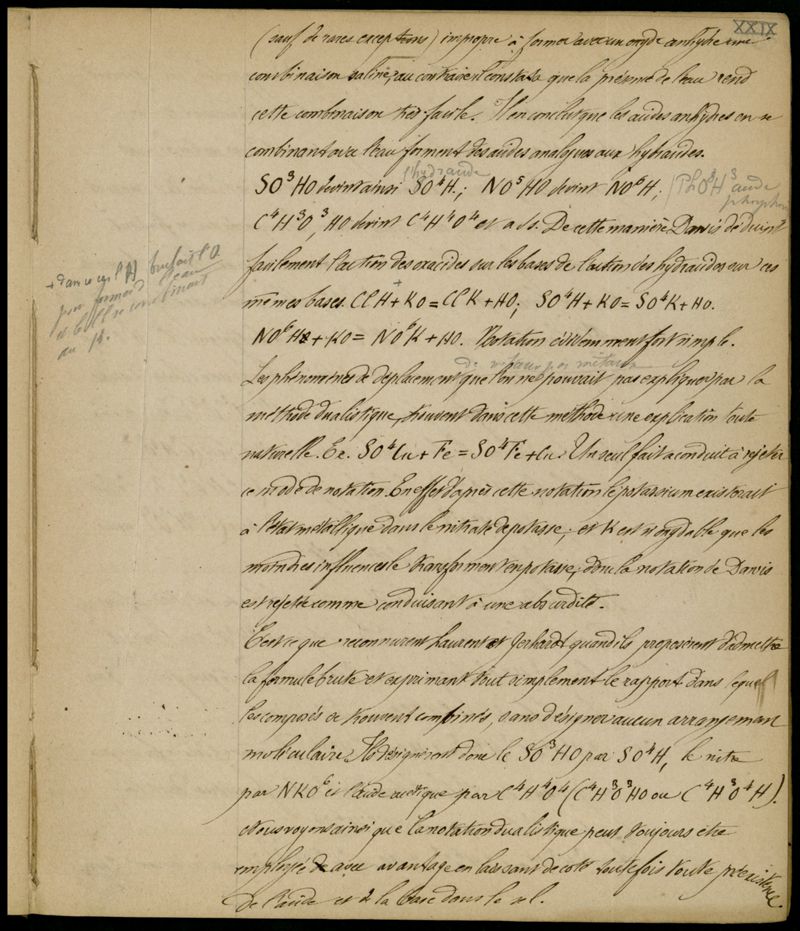 XXIX
(sauf de rares exceptions) impropre à former avec un oxyde anhydre une
combinaison saline, au contraire il constata que la présence de l'eau rend
cette combinaison très facile. Il en conclut que les acides anhydres en se
combinant avec l'eau forment des acides analogues aux hydracides.
hydracide
SO³HO devint ainsi SO⁴H.; NO⁵HO devint NO⁶H; (PhO⁸H³ acide
phosphor
C⁴H³O³, HO devint C⁴H⁴O⁴ et a. d. s. De cette manière Dawis déduisit
facilement l'action des oxacides sur les bases de l'action des hydracides sur ces
+
mêmes bases. ClH + KO = ClK + HO; SO⁴H + KO = SO⁴K + HO.
NO⁶H + KO = NO⁶K + HO. Notation évidemment fort simple.
+ dans ce cas l'H fait l'O
pour former de l'eau
et le Cl se combinant
au K.
de métaux par métaux
Les phénomènes de déplacement que l'on ne pouvait pas expliquer par la
méthode dualistique, trouvent dans cette méthode une explication toute
naturelle. Ex. SO⁴Cu + Fe = SO⁴Fe + Cu. Un seul fait a conduit à rejeter
ce mode de notation. En effet d'après cette notation le potassium existerait
à l'état métallique dans le nitrate de potasse; et K est si oxydable que les
moindres influences le transforment en potasse; donc la notation de Dawis
est rejetée comme conduisant à une absurdité.
C'est ce que reconnurent Laurent et Gerhardt quand ils proposèrent d'admettre
la formule brute et exprimant tout simplement le rapport dans lequel
les composés se trouvent combinés, sans désigner aucun arrangement
moléculaire. Ils désignèrent donc le SO³HO par SO⁴H, le nitre
par NKO⁶ et l'acide acétique par C⁴H⁴O⁴ (C⁴H³O³HO ou C⁴H³O⁴H).
Nous voyons ainsi que la notation dualistique peut toujours être
employée avec avantage en laissant de coté toutefois toute préexistence
de l'acide et de la base dans le sel.